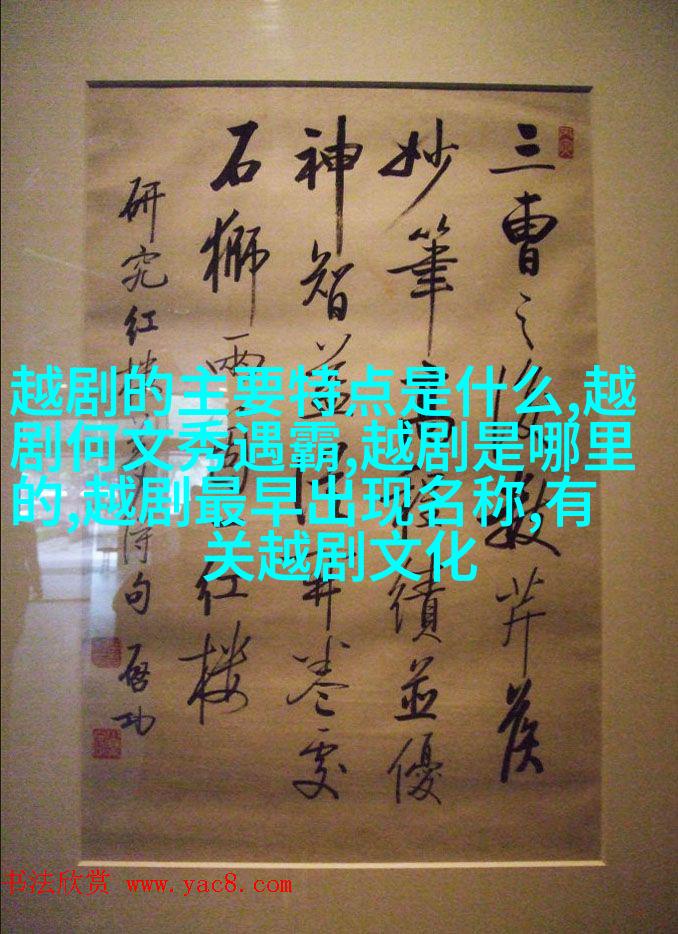 三曹之後數芹侯
妙筆高程績並優
神智益從開卷處
石獅兩個红楼
研究红楼夢得句 啟功
越剧的主要特点是什么,越
剧何文秀遇霸,越剧是哪里
的,越剧最早出现名称,有
关越剧文化
书法欣赏 www.yac8.com